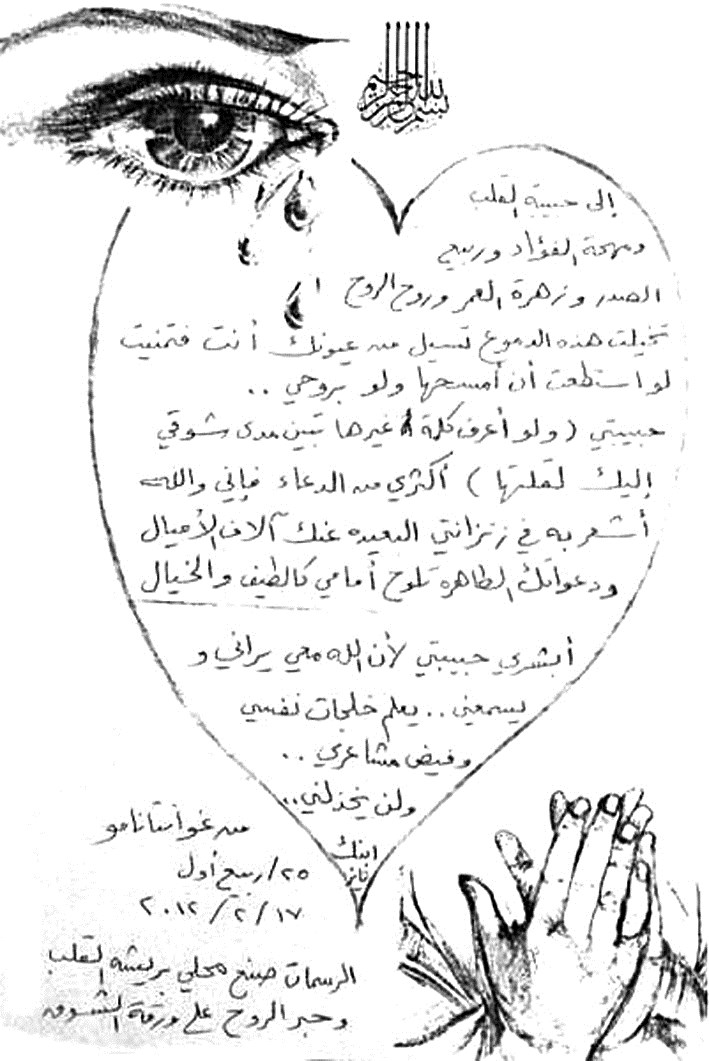 بسم الله الرحمن الرحيم
إلى حبيبة القلب
ومهجة الفؤاد وربيع
الصدر وزهرة العمر وروح الروح
تخيلت هذه الدموع تسيل من عيونك أنت فتمنيت
لو استطعت أن أمسحها ولو بروحي ..
حبيبتي (ولو أعرف كلمة غيرها تبين مدى شوقي
إليك لقلتها) أكثري من الدعاء فإني والله
أشعر به في زنزانتي البعيده عنك آلاف الأميال
ودعواتك الطاهره تلوح أمامي كالطيف والخيال
أبشري حبيبتي لأن الله معي يراني و
يسمعني .. يعلم خلجات نفسي
وفيض مشاعري ..
ولن يخذلني ..
ابنك
فايز
من غوانتانامو
٢٥/ربيع أول
١٧/٢/٢٠١٢
الرسمات صنع محلي بريشه القلب
وحبر الروح على ورقة الشوق